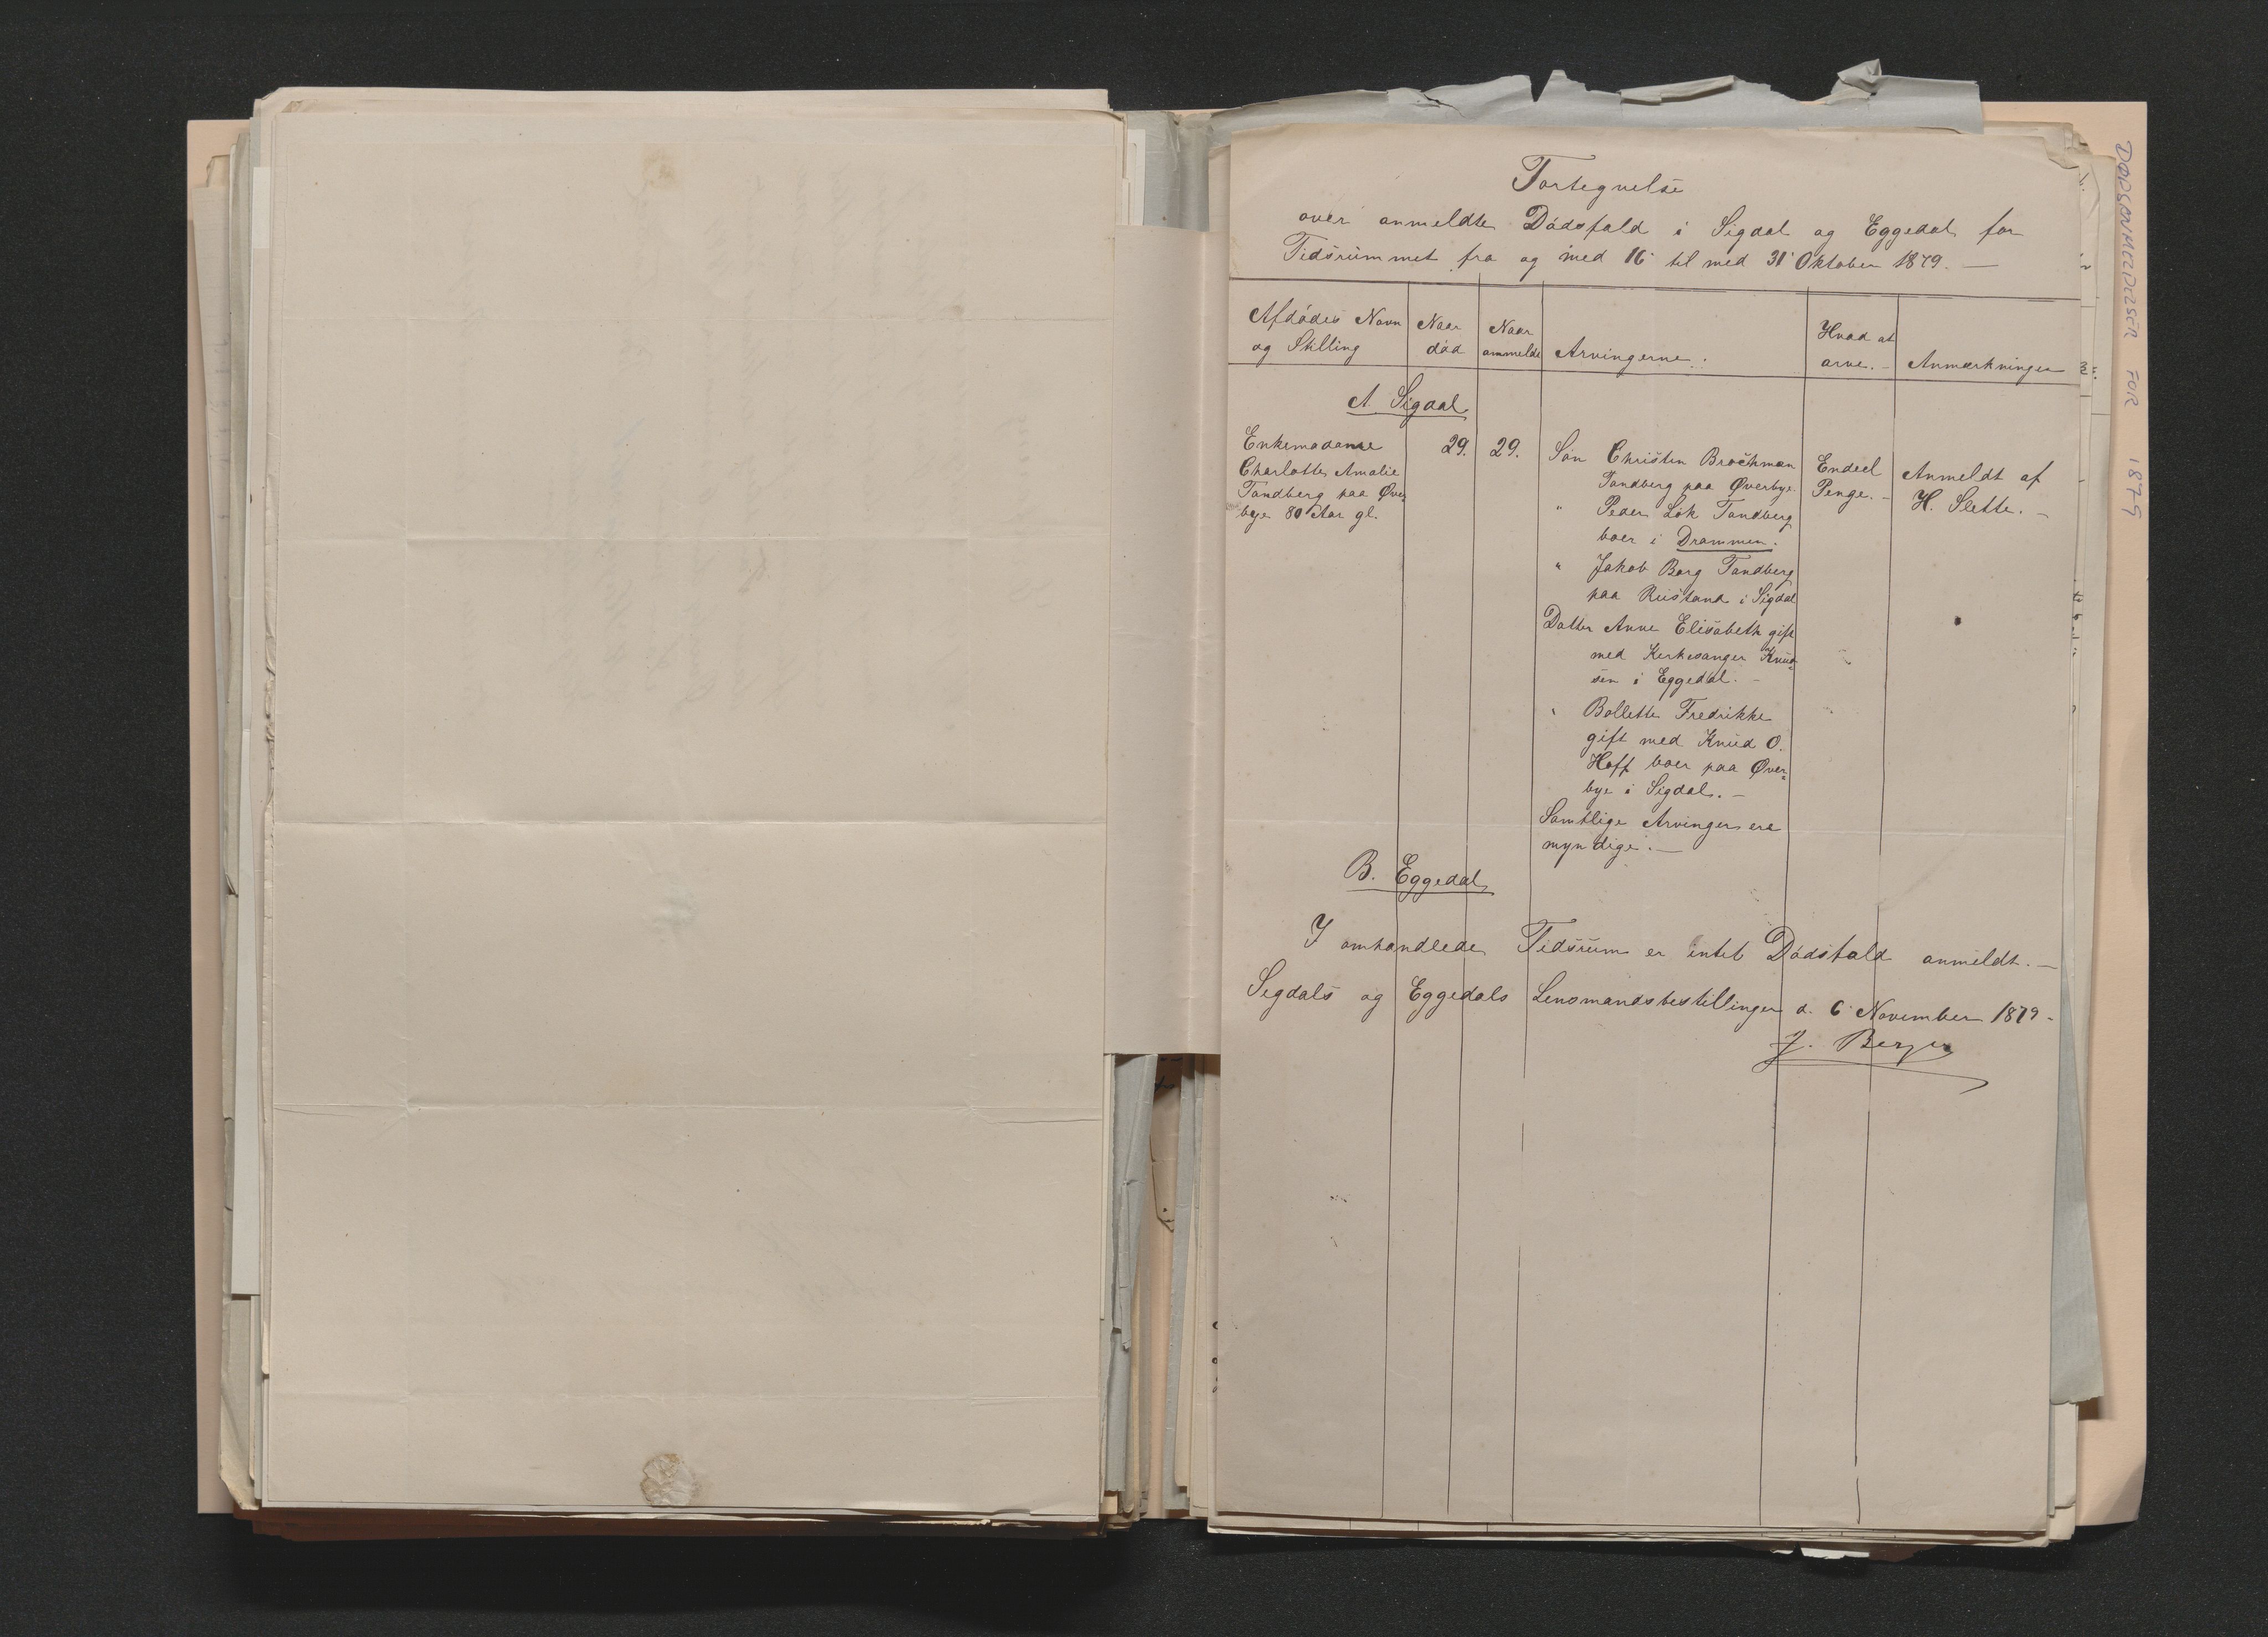 Fortegnelse
over anmeldte Dødsfald i Sigdal og Eggedal for
Tidsrummet fra og med 16' til med 31' Oktober 1879. —
Afdødes Navn og Stilling
Naar død
Naar anmeldt
Arvingerne.
Hvad at arve. -
Anmærkninger
A. Sigdal
Enkemadame
Charlotte Amalie
Tandberg paa Øver
bye 80 Aar gl.
29.
29.
Søn Christen Brochman
Tandberg paa Øverbye.
" Peder Lok Tandberg
boer i Drammen.
" Jakob Borg Tandberg
paa Riistand i Sigdal
Datter Anne Elisabeth gift
med Kirkesanger Knud-
sen i Eggedal. -
" Bollette Fredrikke
gift med Knud O.
Hoff boer paa Øver=
bye i Sigdal. -
Samtlige Arvinger ere
myndige. —
Endeel
Penge. -
Anmeldt af
H. Slette. -
B. Eggedal
I omhandlede Tidsrum er intet Dødsfald anmeldt. —
Sigdals og Eggedals Lensmandsbestillinger d. 6' November 1879 -
J. Berger
DØDSANMELDELSER FOR 1879